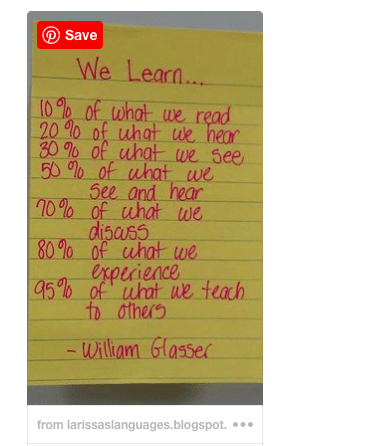 Save
We Learn...
10% of what we read
20% of what we hear
30% of what we see
50% of what we
see and hear
70% of what we
discuss
80% of what we
experience
95% of what we teach
to others
- William Glasser
from larissaslanguages.blogspot.